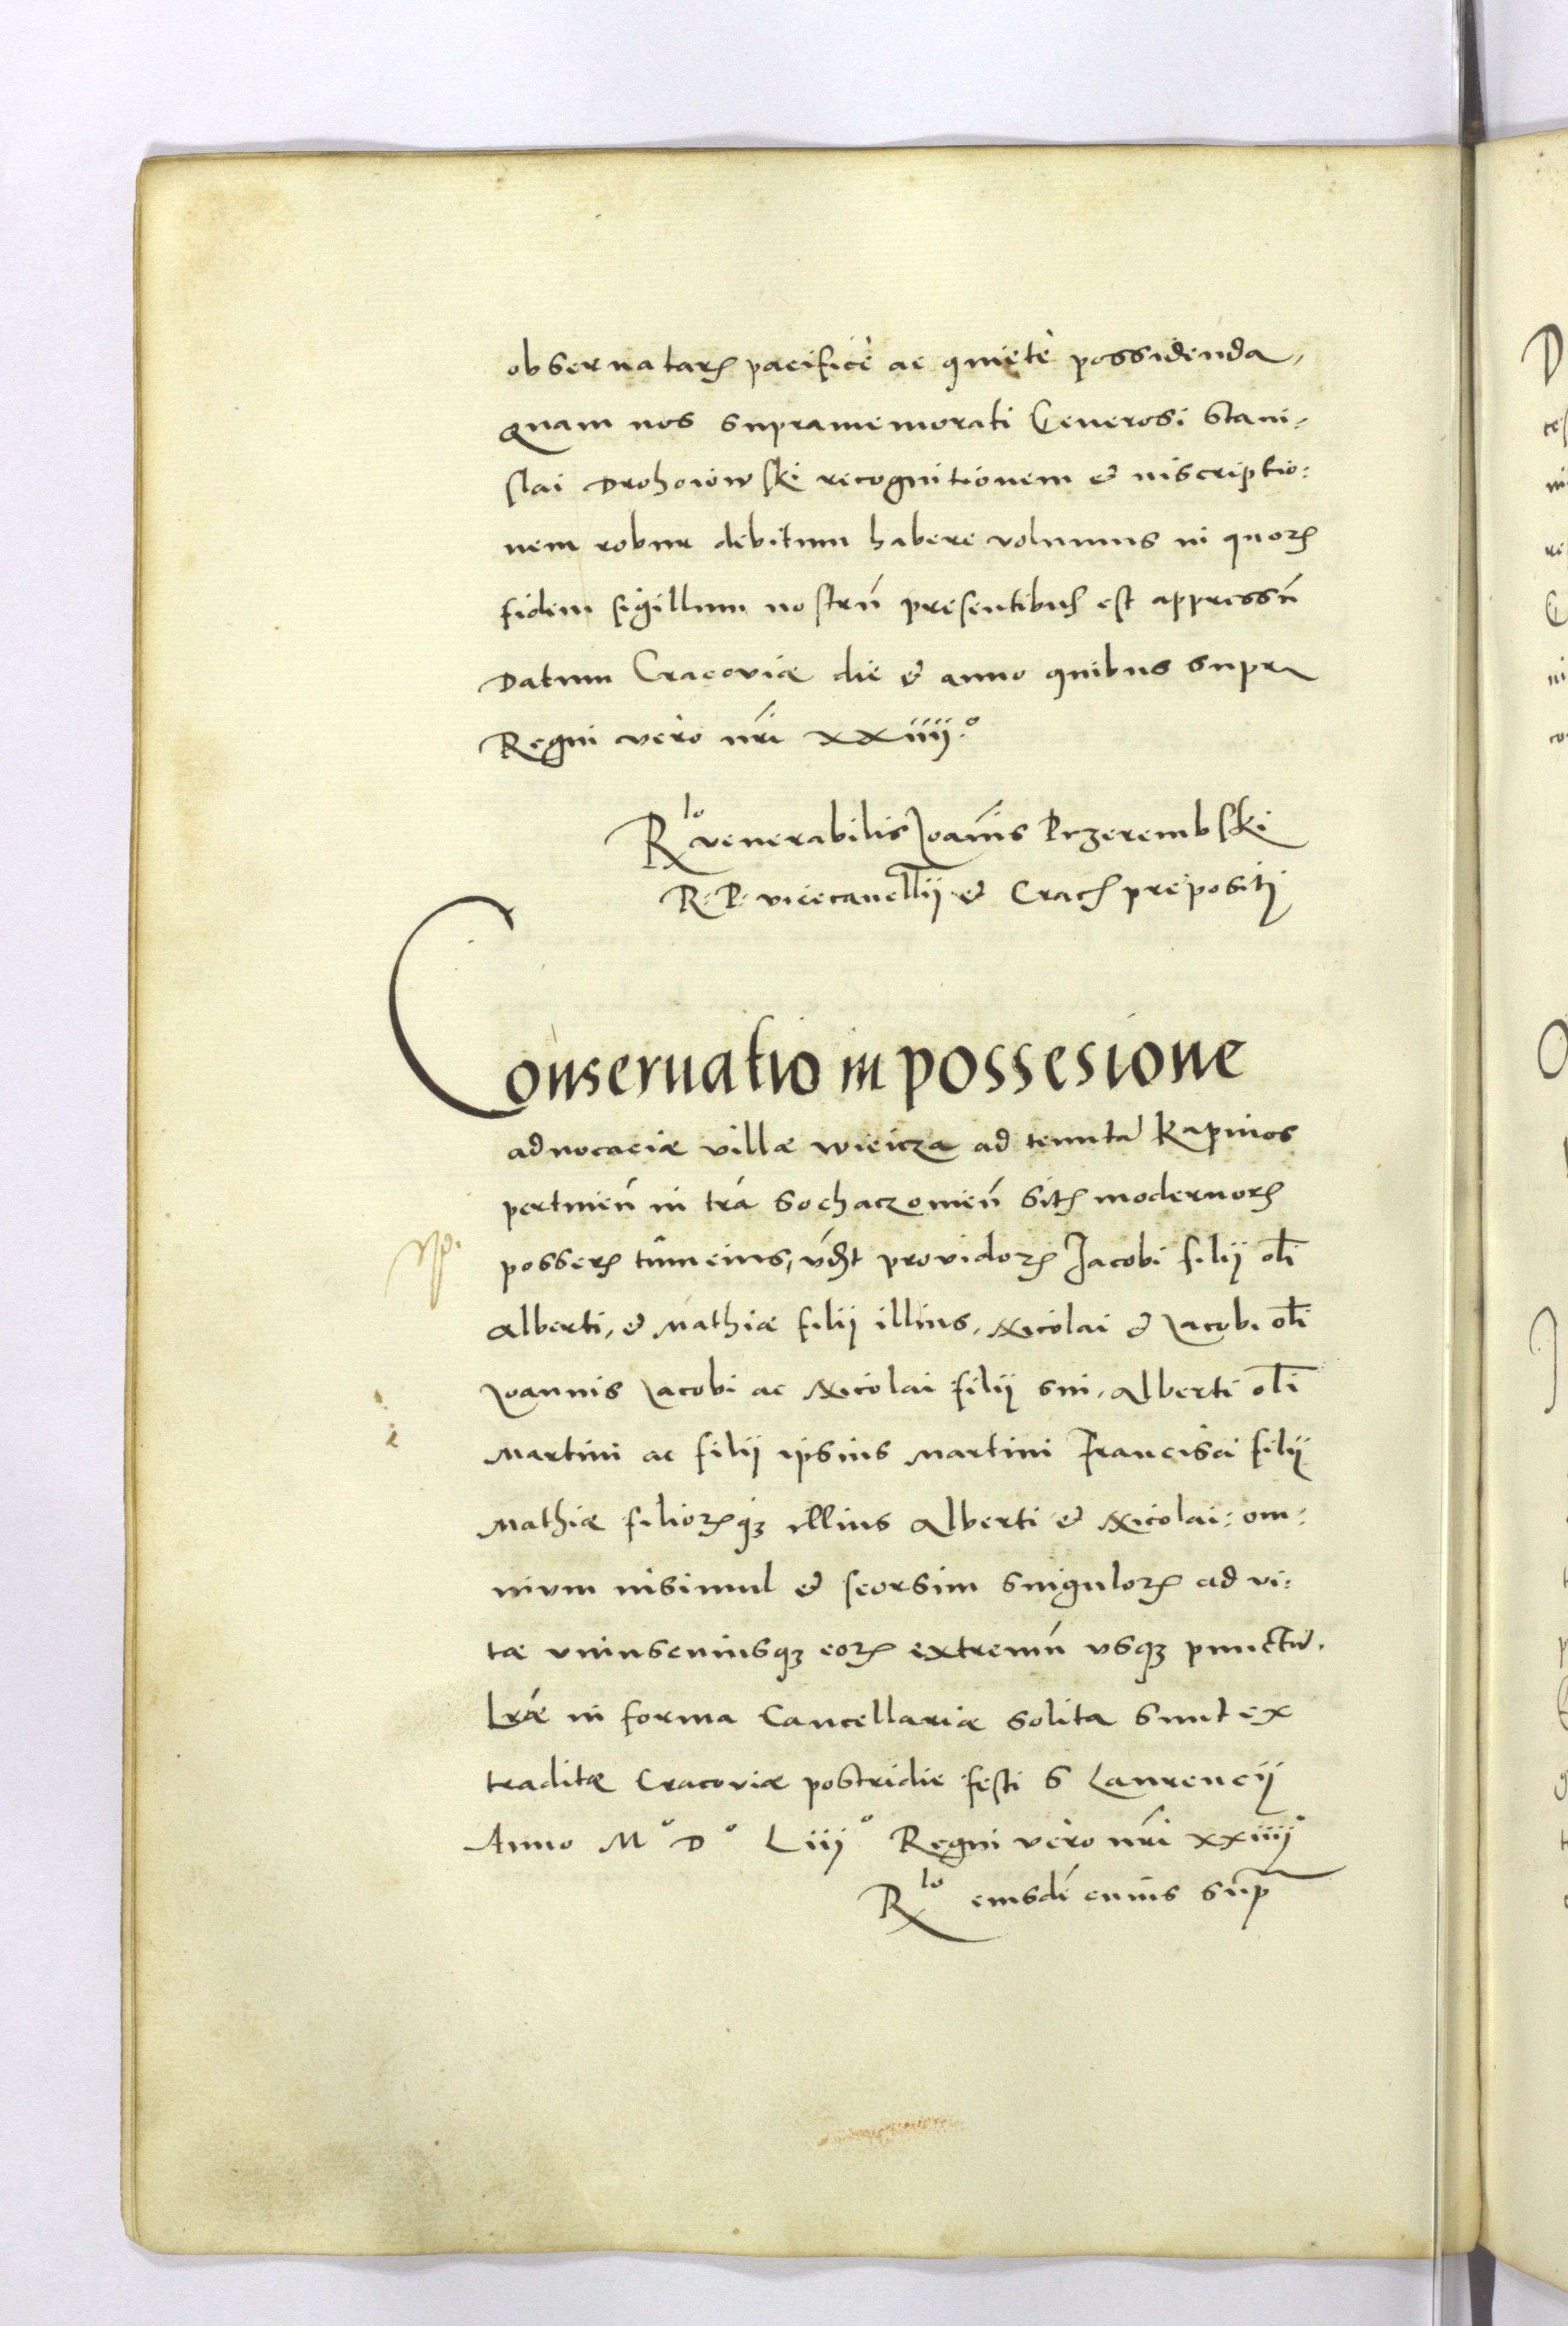 obseruatarꝝ pacificè ac quietè possidenda,
Quam nos supramemorati Generosi Stani-
slai Drohoiowski recognitionem & inscriptio:
nem robur debitum habere volumus in quorꝝ
fidem sigillum nostrū presentibus est appressū
Datum Cracoviæ die & anno quibus supra
Regni vero nr̄i xxiiij.º
Rlo venerabilis Joan̄is Przerembski
R. P. vicecancellij & Crac. prepositi
Conseruatio in possesione
aduocaciæ villæ Wieicza ad tenutā Kapinos
pertinen̄ in tr̄a Sochaczouien̄ sit. modernorꝝ
possesꝝ tūm eius, vꝫt providorꝝ Jacobi filij oli
Alberti, & Mathiæ filij illius, Nicolai & Jacobi oli
Joannis Jacobi ac Nicolai filij sui, Alberti oli
Martini ac filij ipsius Martini Francisci filij
Mathiæ filiorꝝqꝫ illius Alberti & Nicolai: om:
nium insimul & seorsim singulorꝝ ad vi:
tæ vniuscuiusqꝫ eorꝝ extremū vsqꝫ punctū.
Lr̄æ in forma Cancellariæ solita sunt ex
traditæ Cracoviæ postridie festi S Laurencij
Anno Mº Dº Liijº Regni vero nr̄i xxiiijº
Rlo eiusdē cuius sup̄